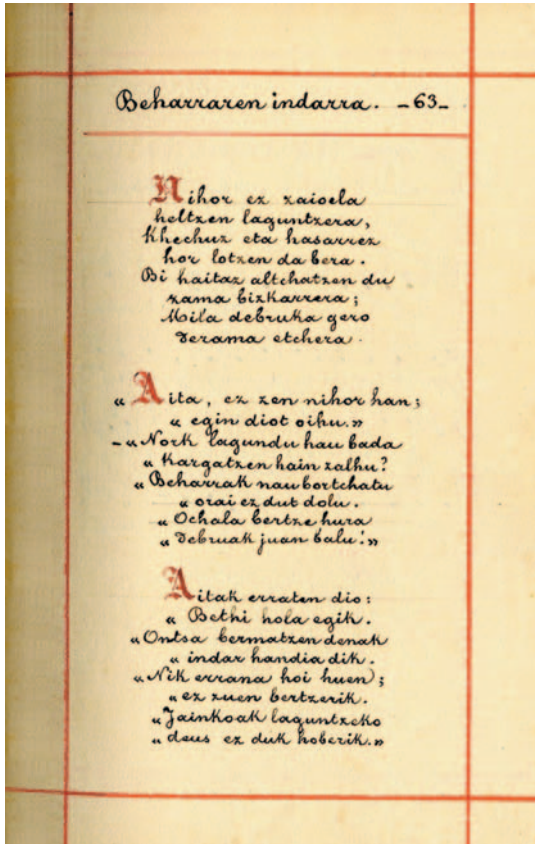 Beharraren indarra. -63-
Nihor ez zaioela
heltzen laguntzera,
Khechuz eta hasarrez
hor lotzen da bera.
Bi haitaz altchatzen du
zama bizkarrera;
Mila debruka gero
derama etchera.
« Aita, ez zen nihor han;
« egin diot oihu.»
-« Nork lagundu hau bada
« Kargatzen hain zalhu?
« Beharrak nau bortchatu
« orai ez dut dolu.
« Ochala bertze hura
« debruak juan balu!»
Aitak erraten dio:
« Bethi hola egik.
« Ontsa bermatzen denak
« indar handia dik.
« Nik errana hoi huen;
« ez zuen bertzerik.
« Jainkoak laguntzeko
« deus ez duk hoberik.»